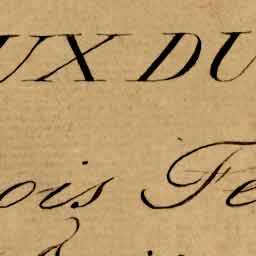 UX DU
ois Fe